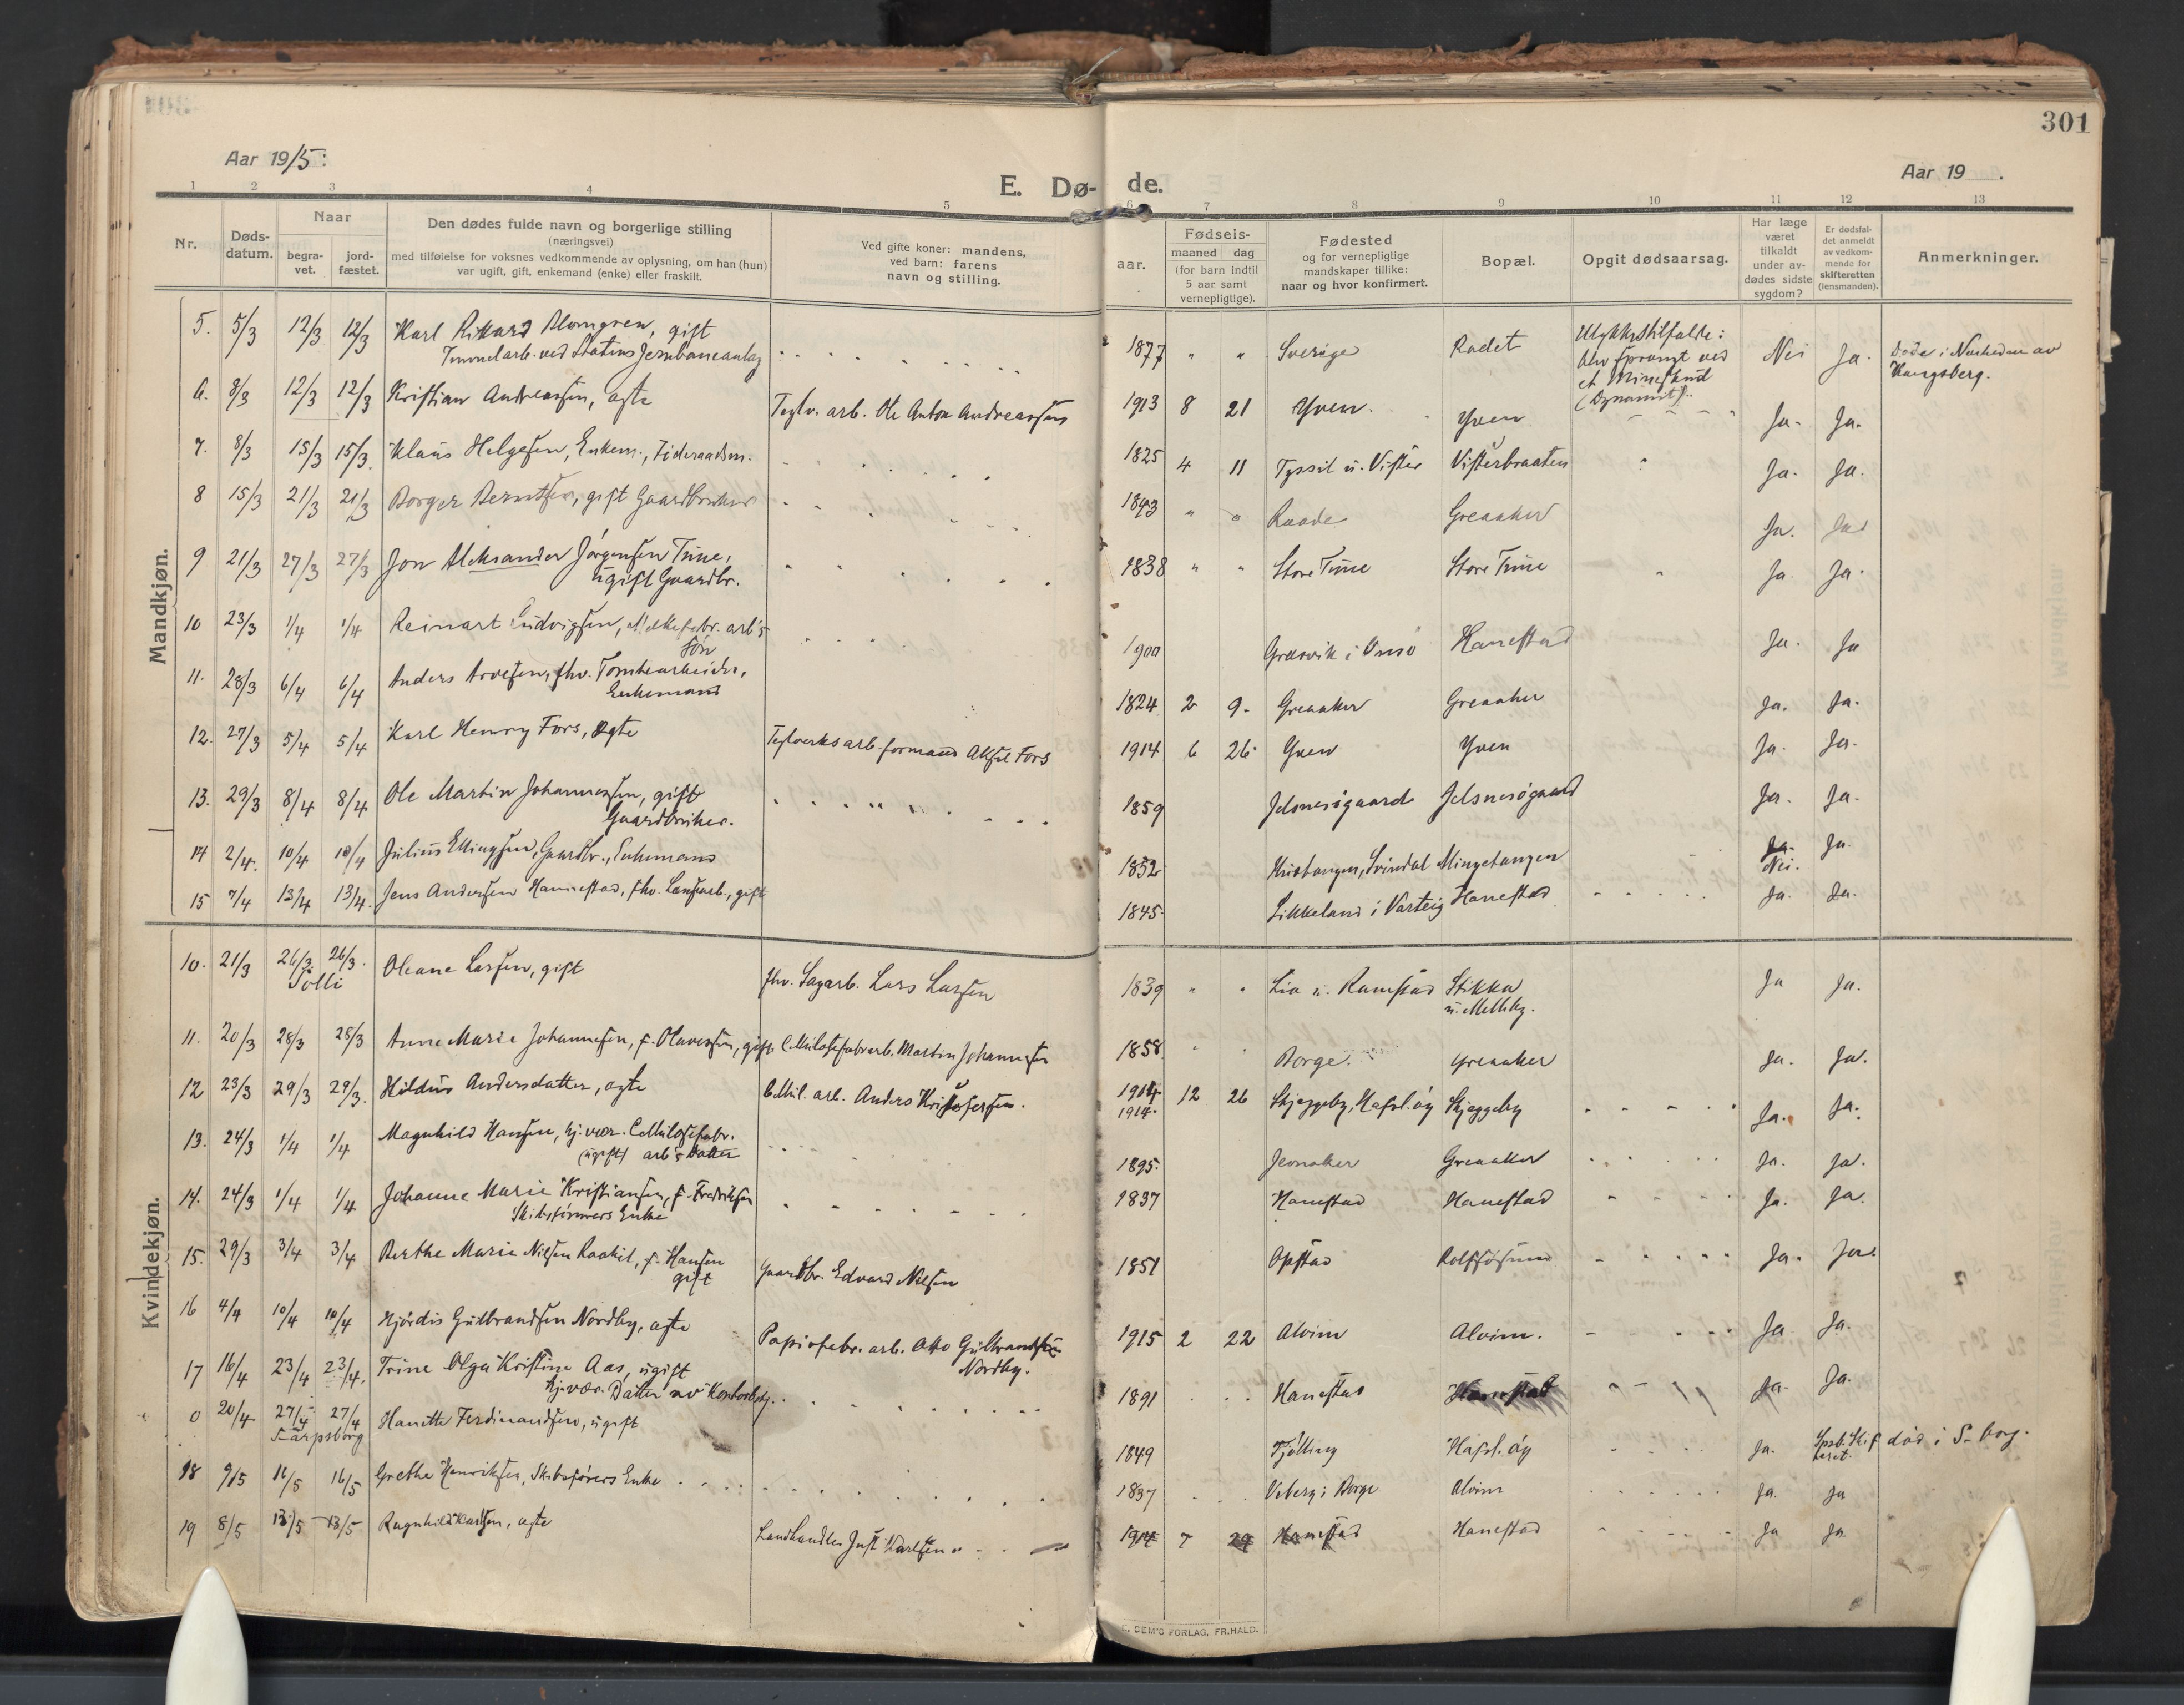 301
Aar 1915:
E. Dø-
de.
Aar 19 .
1 2 3 4 5 6 7 8 9 10 11 12 13
Nr.
Døds-
datum.
Naar
begra-
vet.
jord-
fæstet.
Den dødes fulde navn og borgerlige stilling
(næringsvei)
med tilføielse for voksnes vedkommende av oplysning, om han (hun)
var ugift, gift, enkemand (enke) eller fraskilt.
Ved gifte koner: mandens,
ved barn: farens
navn og stilling.
Fødsels-
aar.
maaned dag
(for barn indtil
5 aar samt
vernepligtige).
Fødested
og for vernepligtige
mandskaper tillike:
naar og hvor konfirmert.
Bopæl.
Opgit dødsaarsag.
Har læge
været
tilkaldt
under av-
dødes sidste
sygdom?
Er dødsfal-
det anmeldt
av vedkom-
mende for
skifteretten
(lensmanden).
Anmerkninger.
Mandkjøn.
5. 5/3 12/3 12/3 Karl Rikard Blomgren, gift 1877 " " Sverige Radet Ulykkestilfælde: Nei Ja. Døde i Nærheden av
Tunnelarb. ved Statens Jernbaneanlæg blev sprængt ved Kongsberg.
et Mineskud
(Dynamit).
6. 8/3 12/3 12/3 Kristian Andreassen, ægte Teglv. arb. Ole Anton Andreassen 1913 8 21 Yven. Yven Ja. Ja.
7. 8/3 15/3 15/3. Klaus Helgesen, Enkem., Føderaadsm. 1825 4 11 Tyssil u. Vister Visterbraaten Ja. Ja.
8 15/3 21/3 21/3 Borger Berntsen, gift Gaardbruker 1843 " " Raade Greaaker Ja. Ja
9 21/3 27/3 27/3 Jon Aleksander Jørgensen Tune, 1838 " " Store Tune Store Tune Ja Ja.
ugift Gaardbr.
10 23/3 1/4 1/4 Reinart Ludvigsen, arb's 1900 Græsvik i Onsø Hanestad Ja. Ja
Søn
11. 28/3 6/4 6/4 Anders Arvesen, fhv. Tomtearbeider, 1824 2 9. Greaaker Greaaker Ja. Ja.
Enkemand
12. 27/3 5/4 5/4 Karl Henry Fors, ægte Teglverksarb. formand Aksel Fors 1914 6 26 Yven Yven Ja. Ja.
13. 29/3 8/4 8/4 Ole Martin Johannessen, gift 1859 Jelsnesøgaard Jelsnesøgaard Ja. Ja.
Gaardbruker.
14 2/4. 10/4 10/4 Julius Ellingsen, Gaardbr., Enkemand 1852 Kristangen, Svindal Mingetangen Ja. Ja.
Nei.
15 7/4 13/4 13/4. Jens Andersen Hannestad, fhv. Lensearb., gift 1845. Likkeland i Varteig Hanestad Ja. Ja.
Kvindekjøn.
10. 21/3 26/3 26/3. Oleane Larsen, gift fhv. Sagarb. Lars Larsen 1839 " " Lia u. Ramstad Stikka Ja Ja.
Solli u. Melleby.
11. 20/3 28/3 28/3 Anne Marie Johannesen, f. Olavesen, gift Cellulosefabrarb. Martin Johannesen 1858. Borge. Greaaker Ja. Ja.
12 23/3 29/3 29/3. Hildus Andersdatter, ægte Cellul. arb. Anders Kristofersen. 1914. 12 26 Skjeggeby, Hafsl. øy Skjeggeby Ja. Ja.
1914.
13. 24/3 1/4 1/4 Magnhild Hansen, hj. vær. Cellulosefabr. 1895. Jevnaker Greaaker Ja. Ja.
(ugift) arb's Datter
14. 24/3 1/4 1/4 Johanne Marie Kristiansen, f. Fredriksen 1837 Hanestad Hanestad Ja. Ja.
Skibstømmers Enke
15. 29/3 3/4 3/4 Berthe Marie Nilsen Raakil, f. Hansen Gaardbr. Edvard Nilsen 1851 Opstad Rolfsøsund Ja. Ja.
gift
16 4/4 10/4 10/4 Hjørdis Gulbrandsen Nordby, ægte Papirfabr. arb. Otto Gulbrandsen 1915 2 22 Alvim Alvim. Ja Ja.
Nordby.
17 16/4 23/4 23/4. Trine Olga Kristine Aas, ugift 1891 Hanestad Hanestad Ja. Ja.
hj. vær. Datter av
0 20/4 27/4 27/4 Hanette Ferdinandsen, ugift 1849 Tjølling Hafsl. øy Ja. Spsb. Skif død i S-borg.
Sarpsborg teret.
18 9/5 16/5 16/5 Grethe Henriksen, Skibsførers Enke 1837 Viberg i Borge Alvim Ja. Ja
19 8/5 13/5 13/5 Ragnhild Karlsen, ægte Landhandler Just Karlsen 1914 7 29 Hanestad Hanestad Ja Ja.
E. SEM'S FORLAG, FR.HALD.